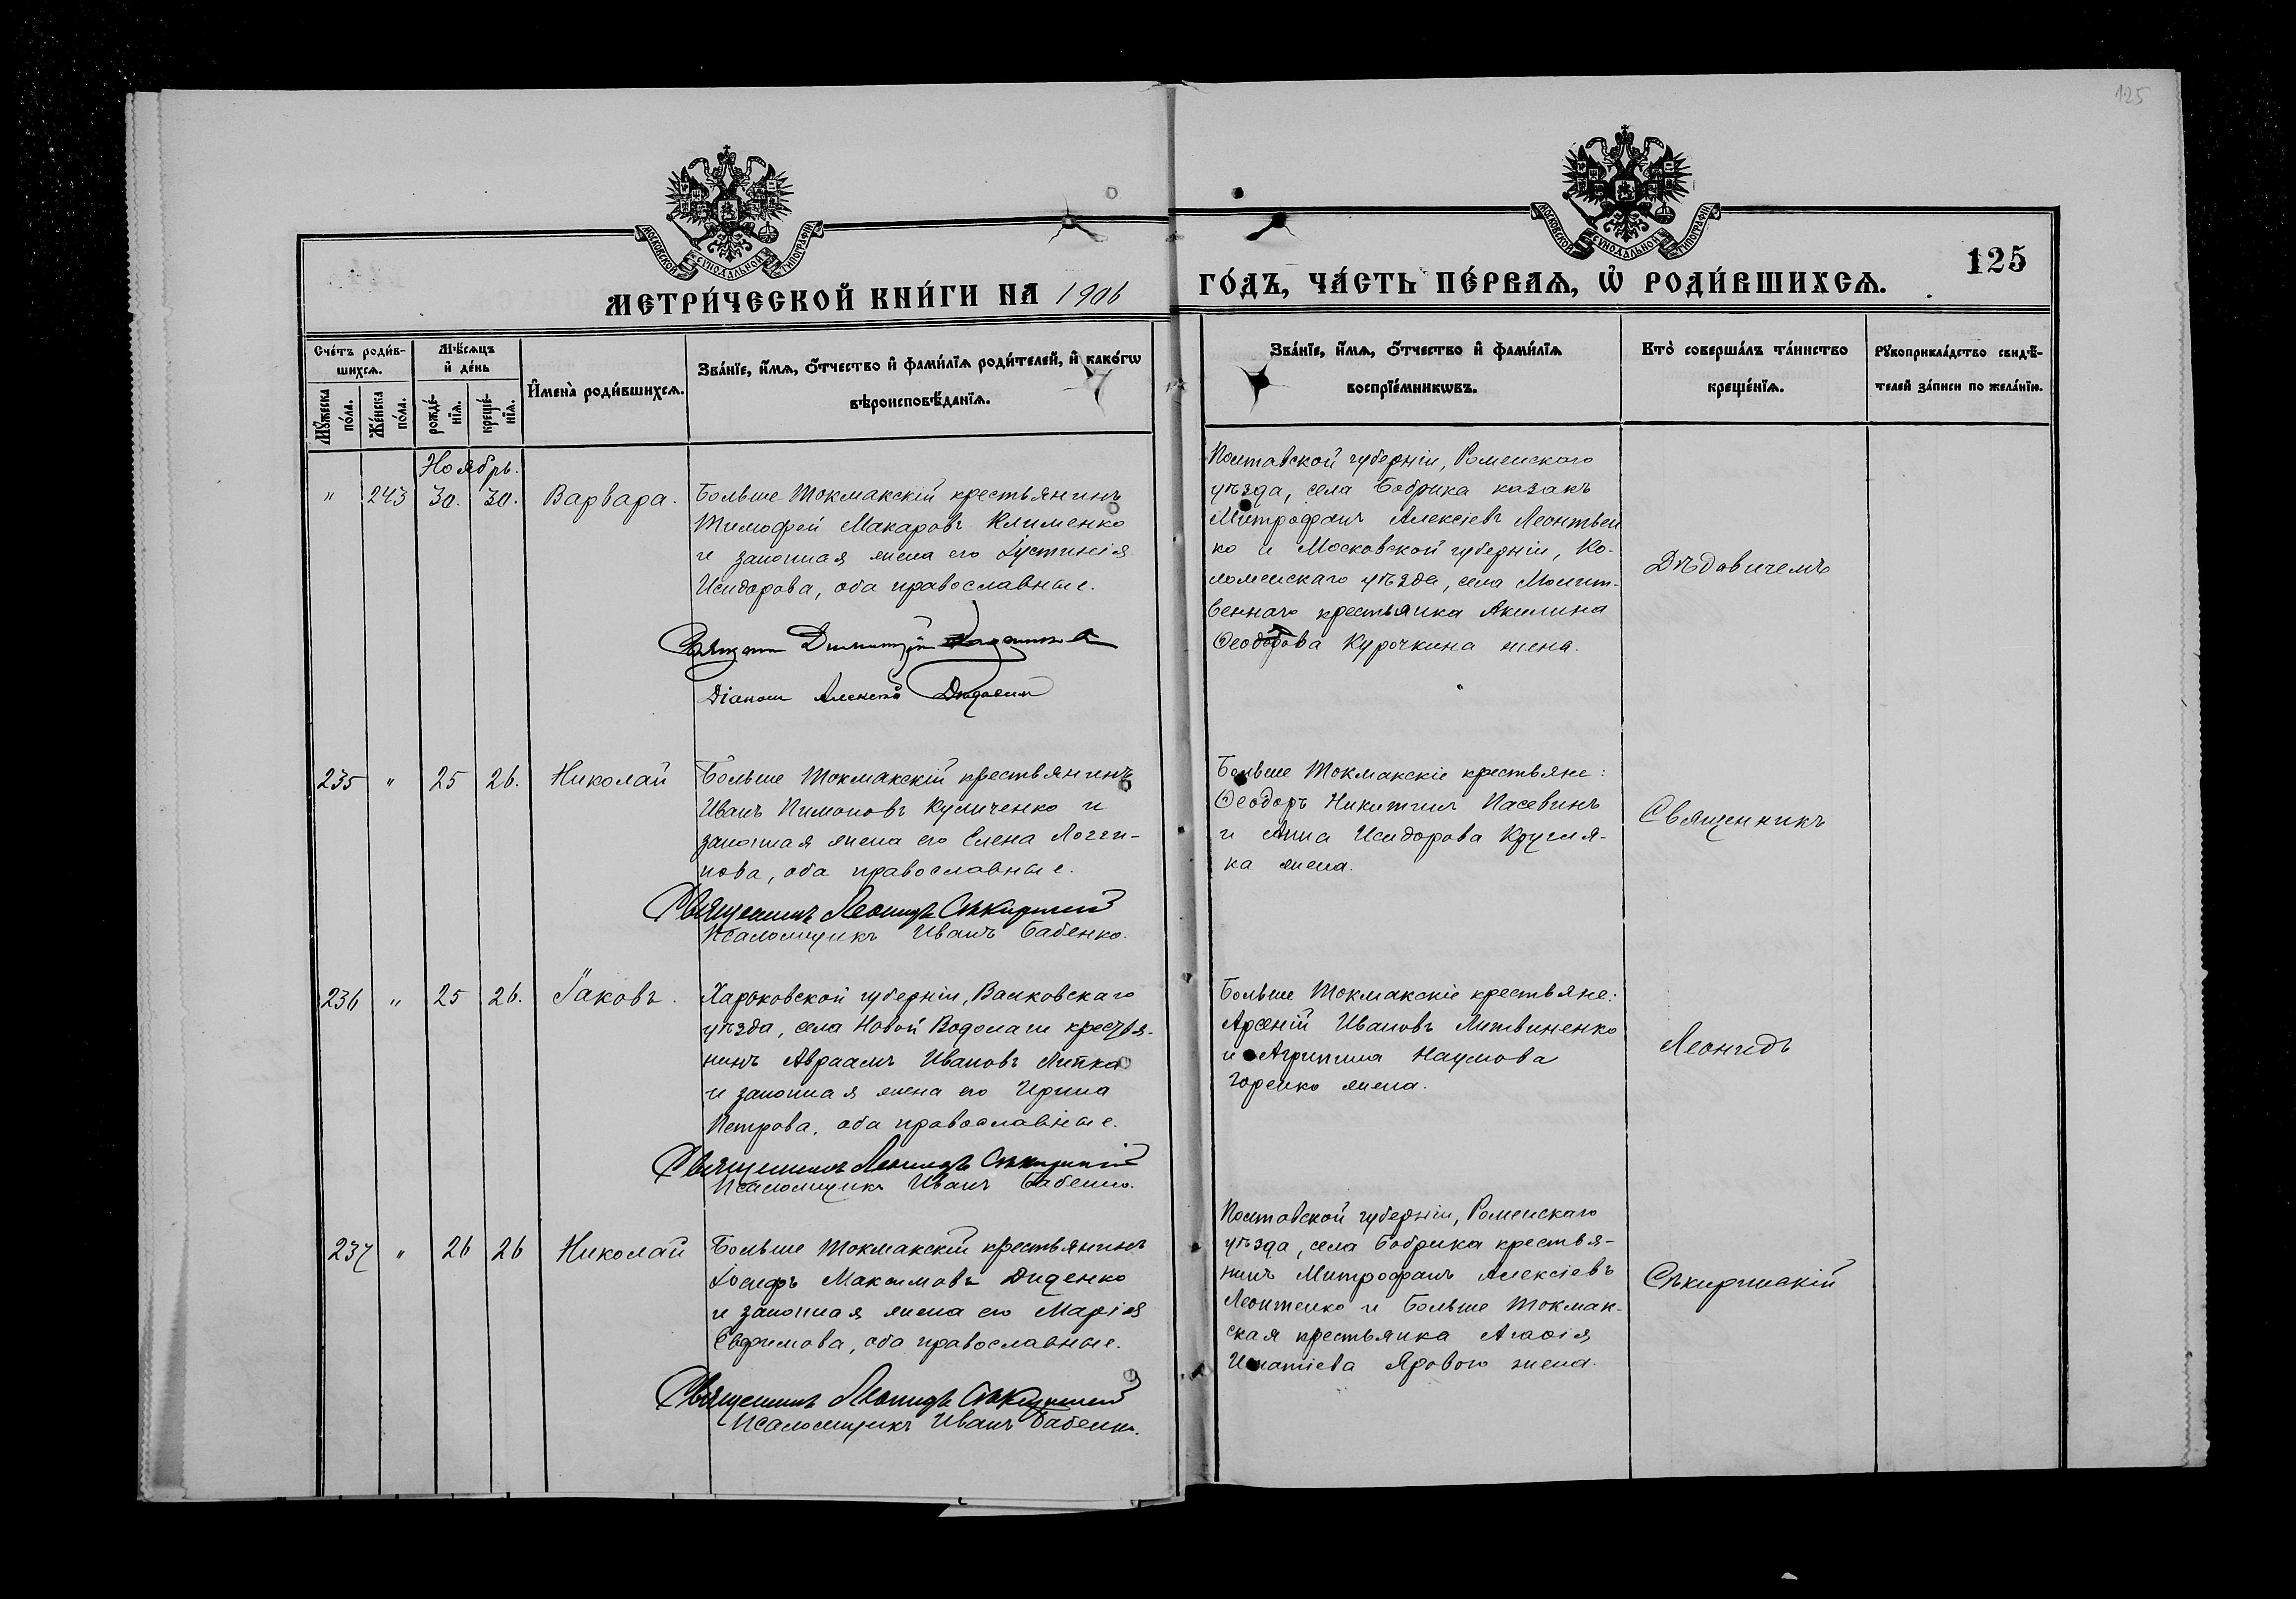 125
МОСКОВСКОЙ СѴНОДАЛЬНОЙ ТИПОГРАФІИ
МОСКОВСКОЙ СѴНОДАЛЬНОЙ ТИПОГРАФІИ
125
МЕТРИ́ЧЕСКОЙ КНИ́ГИ НА 1906 ГО́ДЪ, ЧА́СТЬ ПЕ́РВАѦ, Ѡ҆ РОДИ́ВШИХСѦ.
Сче́тъ роди́в-
шихсѧ.
Мꙋ́жеска по́ла.
Же́нска по́ла.
Мѣ́сѧцъ
и҆ де́нь
рожде́-
нїѧ.
креще́-
нїѧ.
И҆мена̀ роди́вшихсѧ.
Зва́нїе, и҆́мѧ, ѻ҆́тчество и҆ фами́лїѧ роди́телей, и҆ како́гѡ
вѣроисповѣ́данїѧ.
Зва́нїе, и҆́мѧ, ѻ҆́тчество и҆ фами́лїѧ
воспрїе́мникѡвъ.
Кто̀ соверша́лъ та́инство
креще́нїѧ.
Рꙋкоприкла́дство свидѣ́-
телей за́писи по жела́нїю.
Ноябрь.
" 243 30. 30. Варвара.
Больше Токмакскій крестьянинъ
Тимофей Макаровъ Клименко
и законная жена его Іустинія
Исидорова, оба православные.
Діаконъ Алексѣй Дѣдовичъ
Полтавской губерніи, Роменскаго
уѣзда, села Бобрика казакъ
Митрофанъ Алексіевъ Леонтьен
ко и Московской губерніи, Ко-
ломенскаго уѣзда, села Молит-
веннаго крестьянка Акилина
Ѳеодорова Курочкина жена.
Дѣдовичемъ
235 " 25 26. Николай
Больше Токмакскій крестьянинъ
Иванъ Пимоновъ Куличенко и
законная жена его Елена Логги-
нова, оба православные.
Священникъ Леонидъ Сѣкирскій
Псаломщикъ Иванъ Бабенко.
Больше Токмакскіе крестьяне:
Ѳеодоръ Никитинъ Пасевинъ
и Анна Исидорова Кругля-
ка жена.
Священникъ
236 " 25 26. Іаковъ.
Харьковской губерніи, Валковскаго
уѣзда, села Новой Водолаги крестья-
нинъ Авраамъ Ивановъ Липка
и законная жена его Ирина
Петрова, оба православные.
Священникъ Леонидъ Сѣкирскій
Псаломщикъ Иванъ Бабенко.
Больше Токмакскіе крестьяне:
Арсеній Ивановъ Литвиненко
и Агрипина Наумова
Горенко жена.
Леонидъ
237 " 26 26 Николай
Больше Токмакскій крестьянинъ
Іосифъ Максимовъ Диденко
и законная жена его Марія
Евфимова, оба православные.
Священникъ Леонидъ Сѣкирскій
Псаломщикъ Иванъ Бабенко.
Полтавской губерніи, Роменскаго
уѣзда, села Бобрика крестья-
нинъ Митрофанъ Алексіевъ
Леонтенко и Больше Токмак-
ская крестьянка Агафія
Игнатіева Ярового жена.